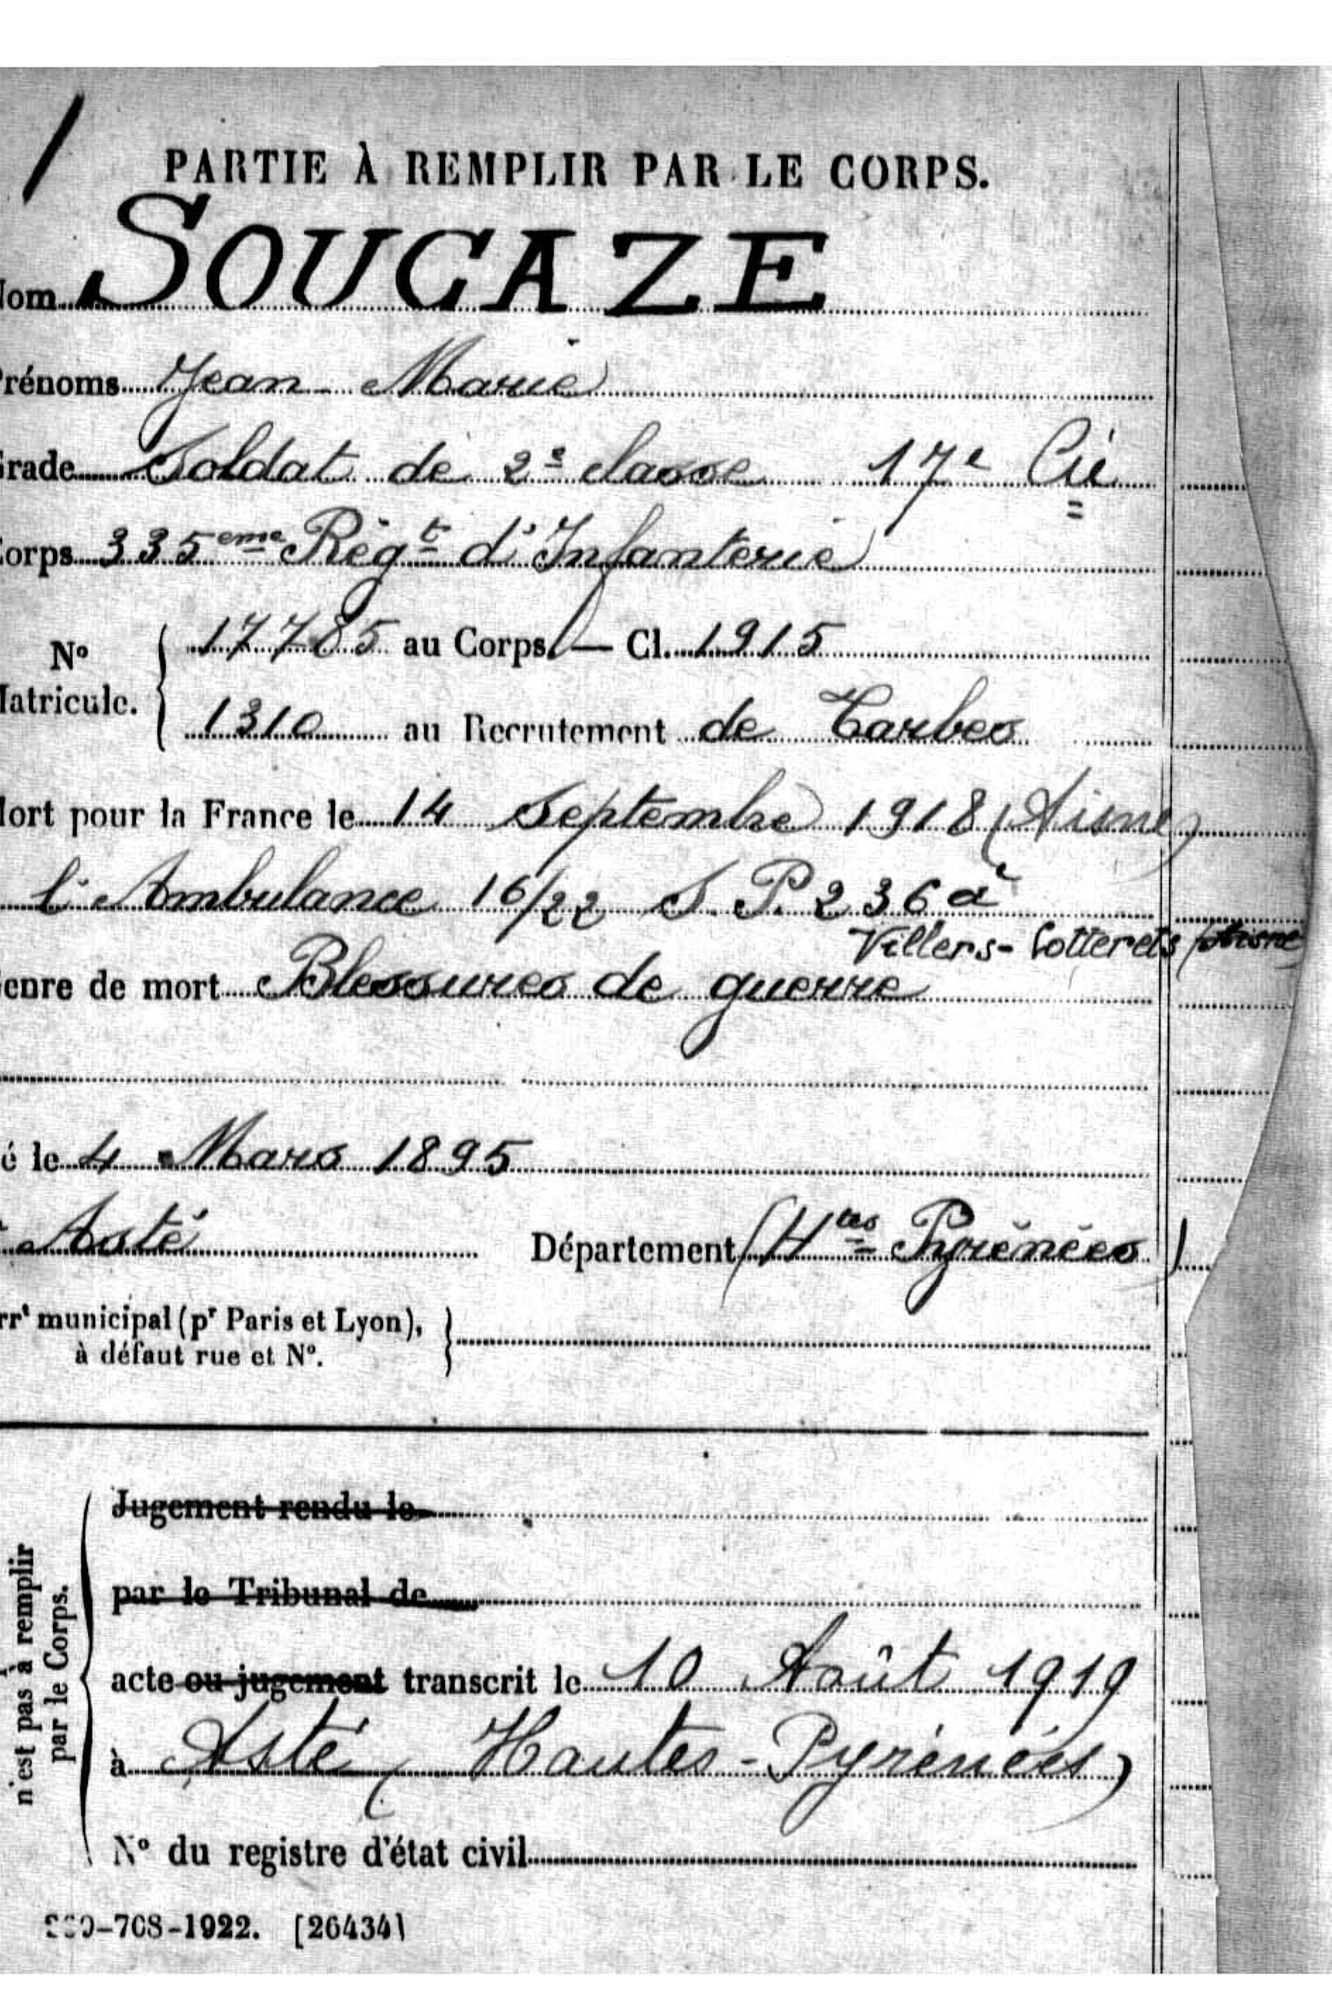 PARTIE À REMPLIR PAR LE CORPS.
Nom SOUCAZE
Prénoms Jean Marie
Grade Soldat de 2e classe 17e Cie
Corps 335eme Régt d'Infanterie
No Matricule. { 17785 au Corps. — Cl. 1915
1310 au Recrutement de Tarbes
Mort pour la France le 14 Septembre 1918 (Aisne)
l'Ambulance 16/22 S.P. 236 à
Villers-Cotterets (Aisne)
Genre de mort Blessures de guerre
é le 4 Mars 1895
Asté Département (Htes Pyrénées)
rrt municipal (pr Paris et Lyon), }
à défaut rue et No.
n'est pas à remplir
par le Corps.
Jugement rendu le
par le Tribunal de
acte ou jugement transcrit le 10 Août 1919
à Asté (Hautes-Pyrénées)
No du registre d'état civil
-708-1922. [26434]